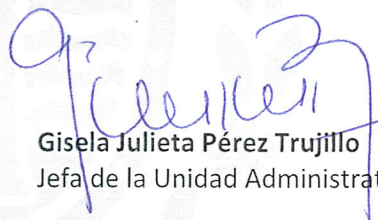 Gisela Julieta Pérez Trujillo
Jefa de la Unidad Administrat